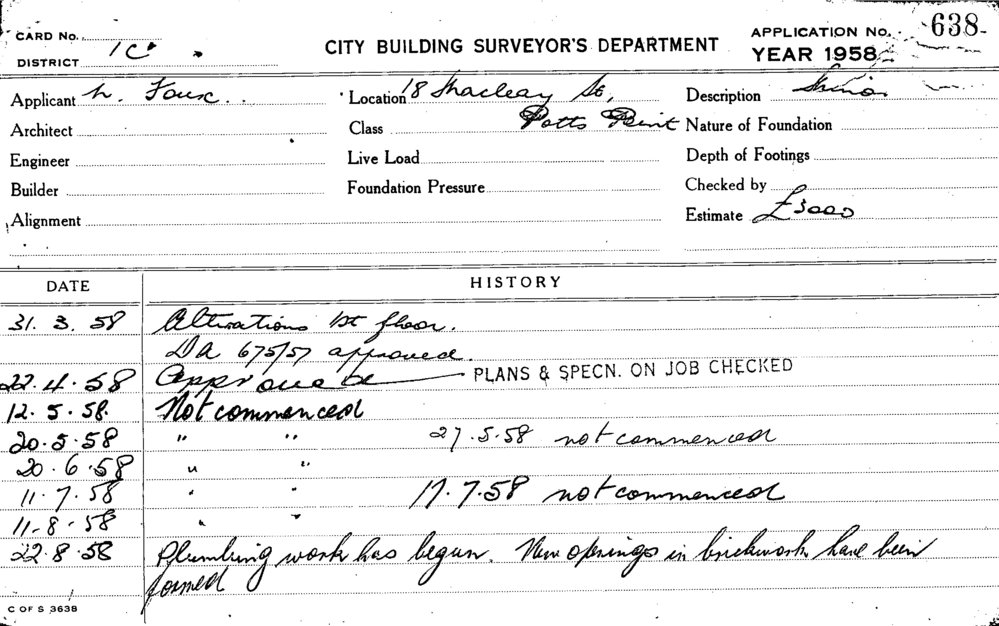 CARD No.
DISTRICT 1C
CITY BUILDING SURVEYOR'S DEPARTMENT
APPLICATION No. 638
YEAR 1958
Applicant h.
Location 18 Macleay St,
Description Minor
Architect
Class Potts Point
Nature of Foundation
Engineer
Live Load
Depth of Footings
Builder
Foundation Pressure
Checked by
Alignment
Estimate £3000
DATE HISTORY
31. 3. 58 Alterations 1st floor.
DA 675/57 approved.
22.4.58 Approved PLANS & SPECN. ON JOB CHECKED
12.5.58. Not commenced
20.5.58 " " 27.5.58 not commenced
20.6.58 " "
11.7.58 " " 17.7.58 not commenced
11-8-58 " "
22.8.58 Plumbing work has begun. New openings in brickwork have been
formed
C OF S 3638